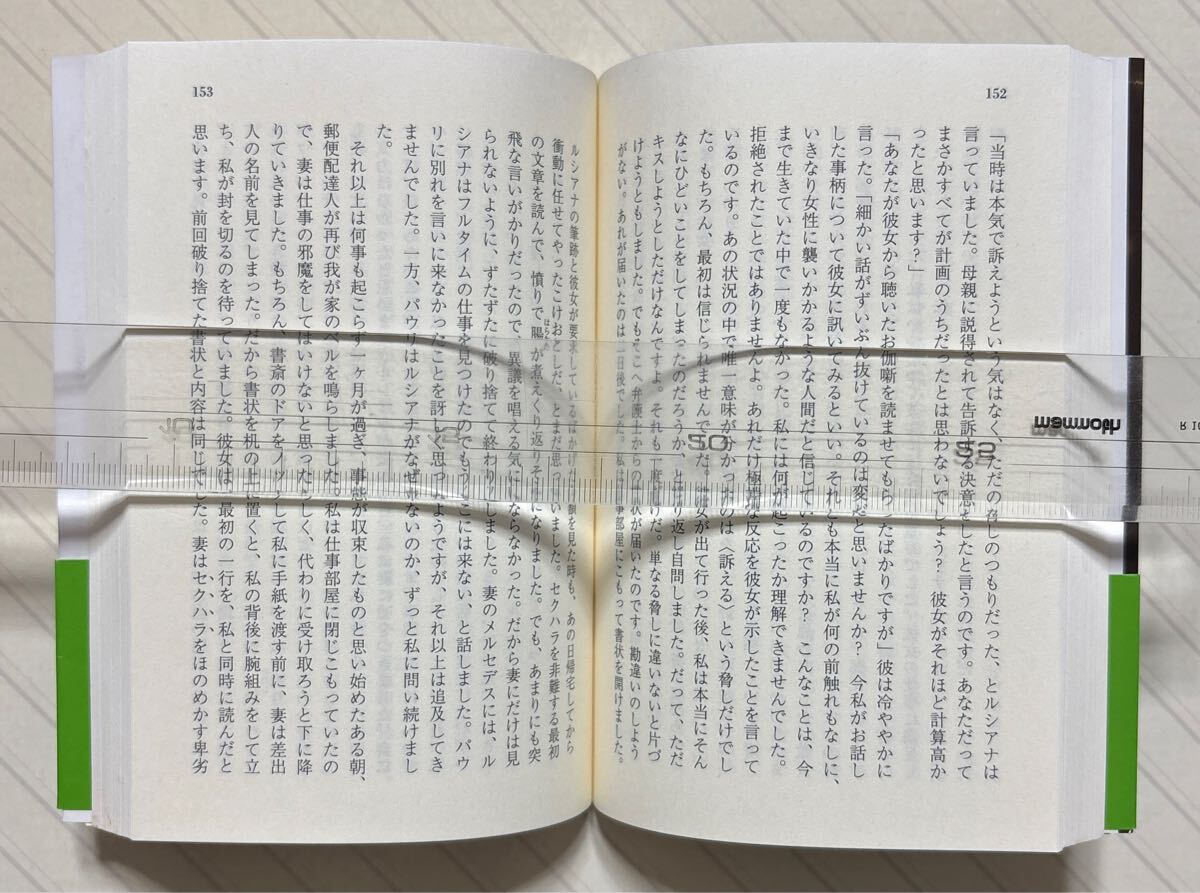 152
「当時は本気で訴えようという気はなく、ただの脅しのつもりだった、とルシアナは
言っていました。母親に説得されて告訴する決意をしたと言うのです。あなただって
まさかすべてが計画のうちだったとは思わないでしょう? 彼女がそれほど計算高か
ったと思います?」
「あなたが彼女から聴いたお伽噺を読ませてもらったばかりですが」彼は冷ややかに
言った。「細かい話がずいぶん抜けているのは変だと思いませんか? 今私がお話し
した事柄について彼女に訊いてみるといい。それとも本当に私が何の前触れもなしに、
いきなり女性に襲いかかるような人間だと信じているのですか? こんなことは、今
まで生きていた中で一度もなかった。私には何が起こったか理解できませんでした。
拒絶されたことではありませんよ。あれだけ極端な反応を彼女が示したことを言って
いるのです。あの状況の中で唯一意味が分かったのは〈訴える〉という脅しだけでし
た。もちろん、最初は信じられませんでした。彼女が出て行った後、私は本当にそん
なにひどいことをしてしまったのだろうか、と繰り返し自問しました。だって、ただ
キスしようとしただけなんですよ。それも一度だけだ。単なる脅しに違いないと片づ
けようともしました。でもそこへ弁護士からの書状が届いたのです。勘違いのしよう
がない。あれが届いたのは一日後でした。私は仕事部屋にこもって書状を開けました。
153
ルシアナの筆跡と彼女が要求しているばかげた額を見た時も、あの日帰宅してから
衝動に任せてやったこけおどしだ、とまだ思っていました。セクハラを非難する最初
の文章を読んで、憤りで腸が煮えくり返りそうになりました。でも、あまりにも突
はらわた
飛な言いがかりだったので、異議を唱える気にもならなかった。だから妻にだけは見
られないように、ずたずたに破り捨てて終わりにしました。妻のメルセデスには、ル
シアナはフルタイムの仕事を見つけたのでもうここには来ない、と話しました。パウ
リに別れを言いに来なかったことを訝しく思ったようですが、それ以上は追及してき
ませんでした。一方、パウリはルシアナがなぜ来ないのか、ずっと私に問い続けまし
た。
それ以上は何事も起こらず一ヶ月が過ぎ、事態が収束したものと思い始めたある朝、
郵便配達人が再び我が家のベルを鳴らしました。私は仕事部屋に閉じこもっていたの
で、妻は仕事の邪魔をしてはいけないと思ったらしく、代わりに受け取ろうと下に降
りていきました。もちろん、書斎のドアをノックして私に手紙を渡す前に、妻は差出
人の名前を見てしまった。だから書状を机の上に置くと、私の背後に腕組みをして立
ち、私が封を切るのを待っていました。彼女は、最初の一行を、私と同時に読んだと
思います。前回破り捨てた書状と内容は同じでした。妻はセクハラをほのめかす卑劣
mammoth
50